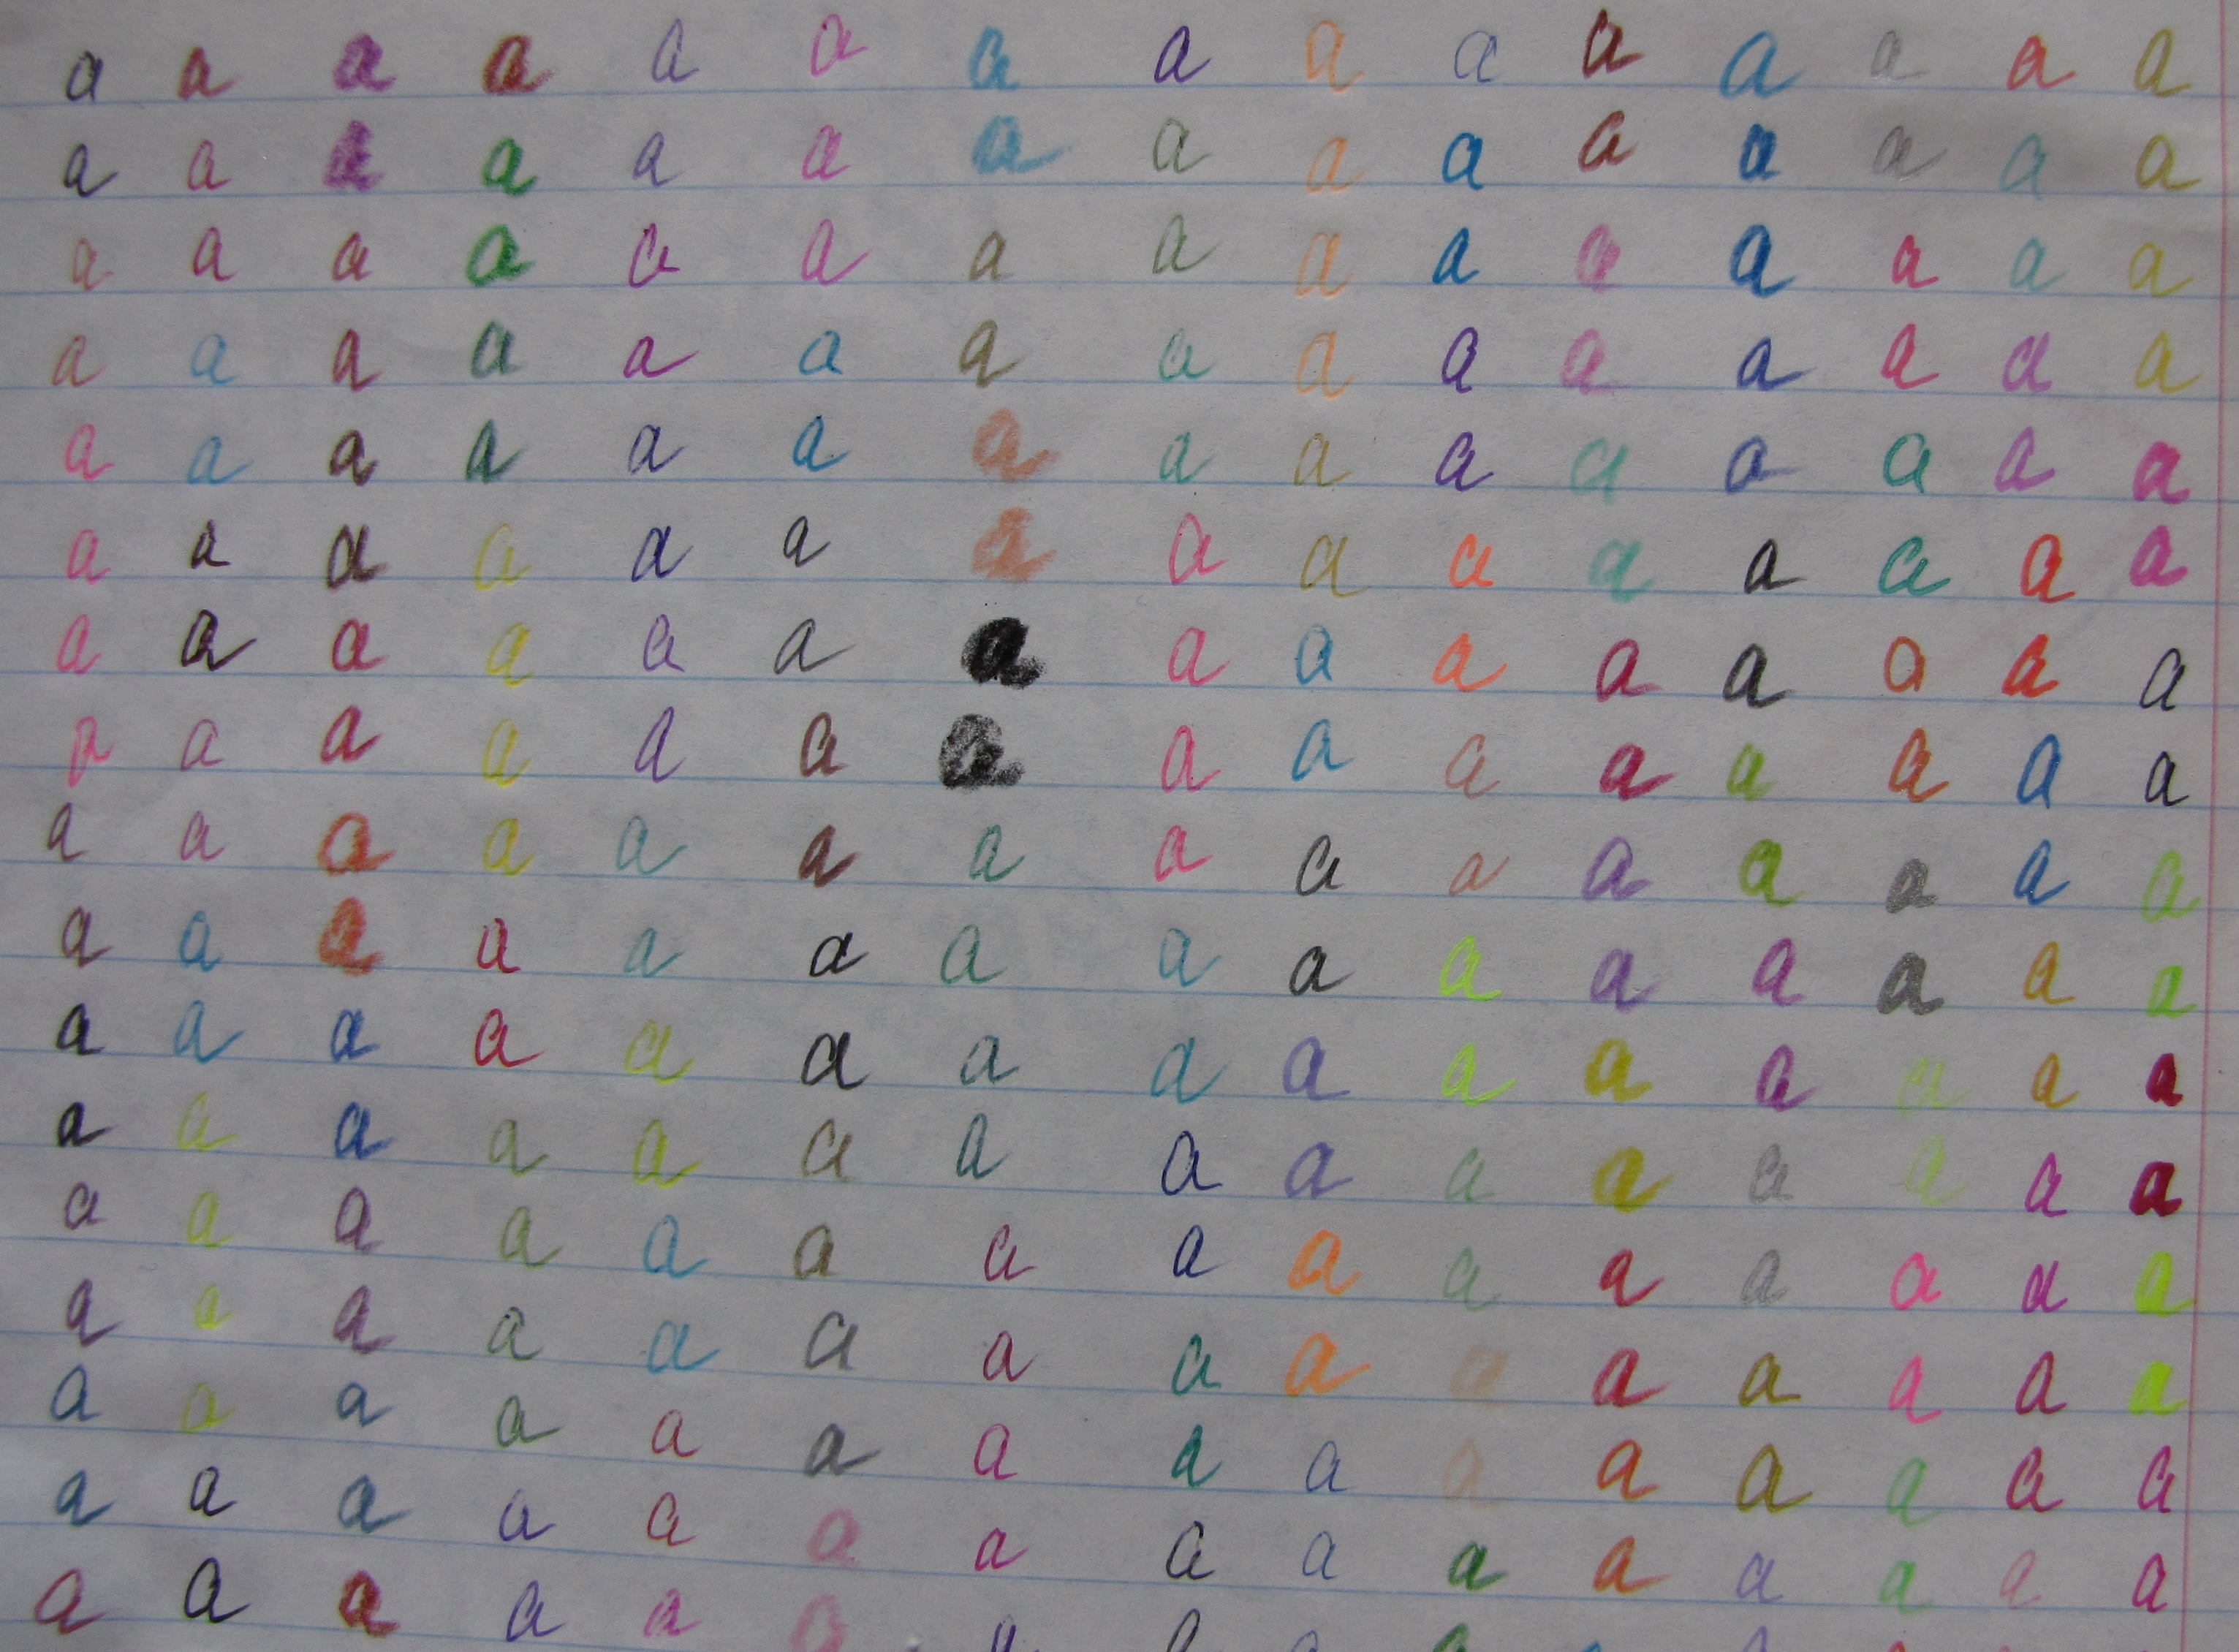 a a a a a a a a a a a a a a a
a a a a a a a a a a a a a a a
a a a a a a a a a a a a a a a
a a a a a a a a a a a a a a a
a a a a a a a a a a a a a a a
a a a a a a a a a a a a a a a
a a a a a a a a a a a a a a a
a a a a a a a a a a a a a a a
a a a a a a a a a a a a a a a
a a a a a a a a a a a a a a a
a a a a a a a a a a a a a a a
a a a a a a a a a a a a a a a
a a a a a a a a a a a a a a a
a a a a a a a a a a a a a a a
a a a a a a a a a a a a a a a
a a a a a a a a a a a a a a a
a a a a a a